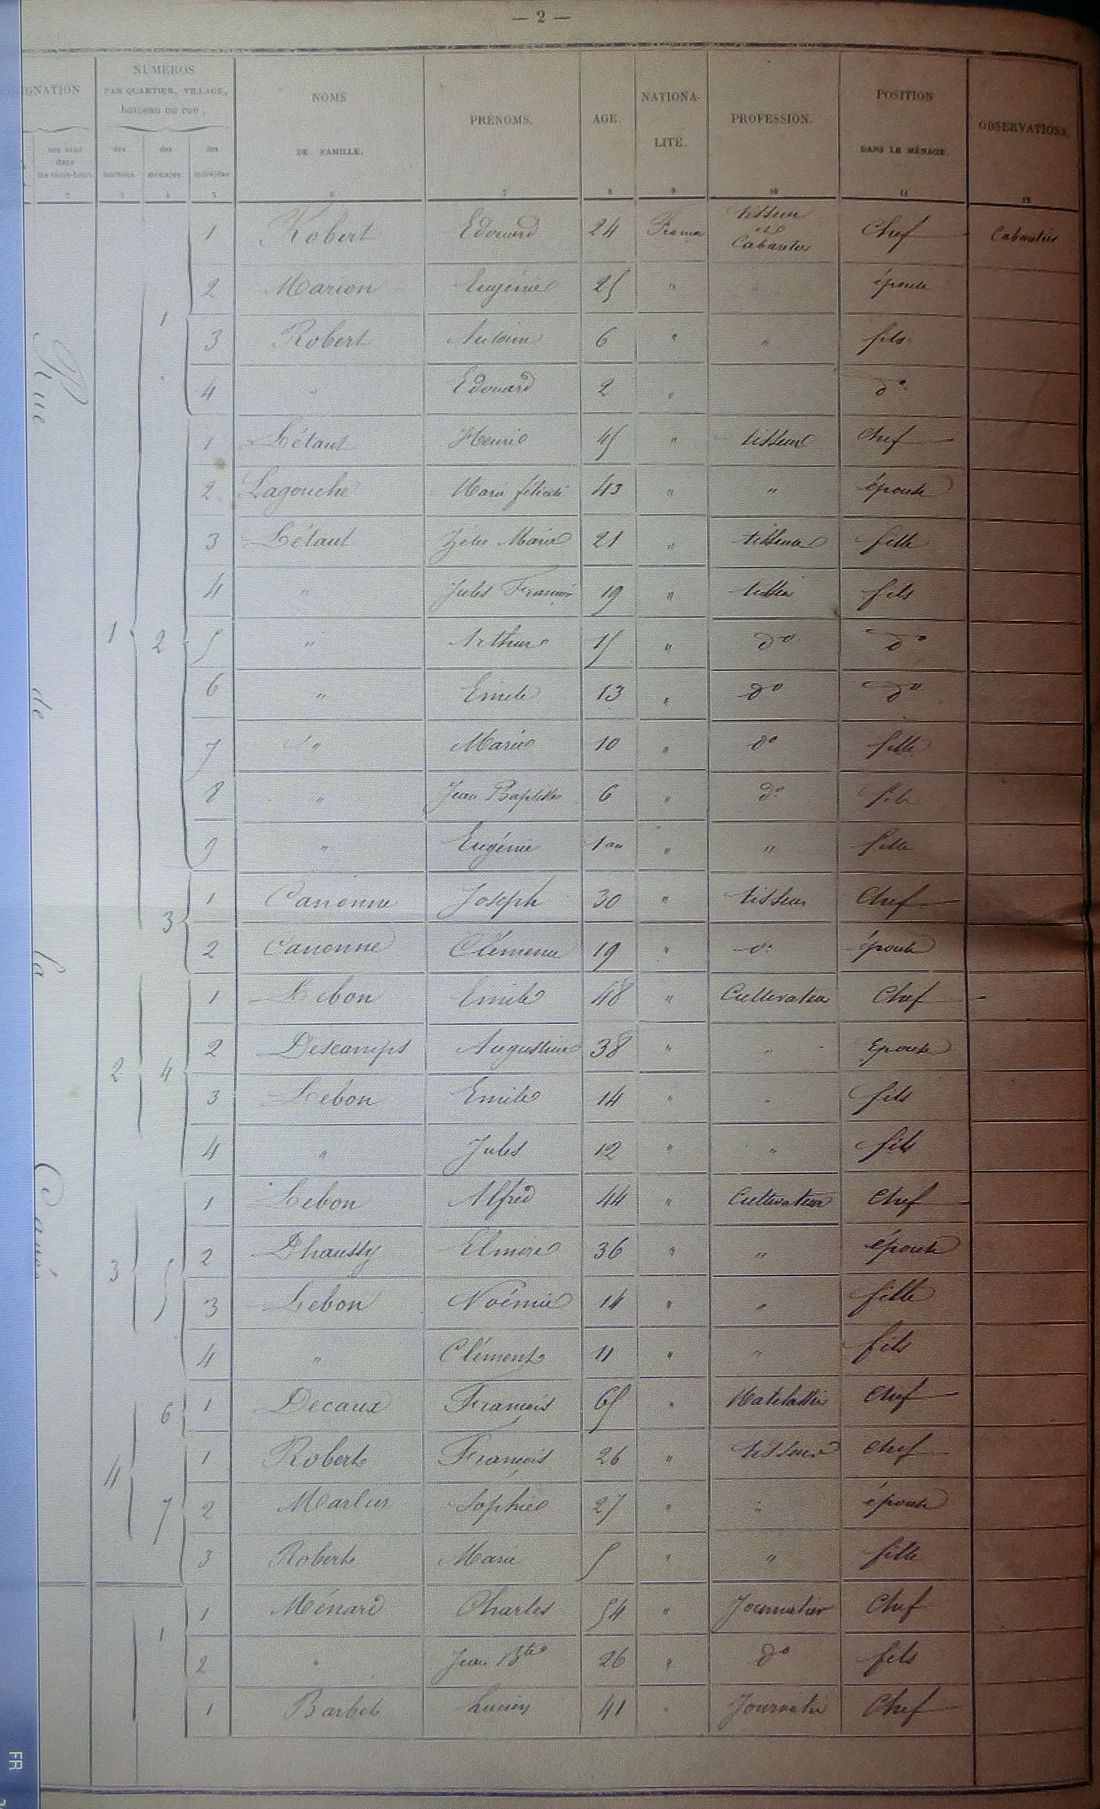 — 2 —
GNATION
NUMÉROS
PAR QUARTIER, VILLAGE,
hameau ou rue.
NOMS
DE FAMILLE.
PRÉNOMS.
AGE.
NATIONA-
LITÉ.
PROFESSION.
POSITION
DANS LE MÉNAGE.
OBSERVATIONS.
des rues
dans
les chefs-lieux.
des
maisons
des
ménages
des
individus
2 3 4 5 6 7 8 9 10 11 12
Rue de la
1 Robert Edouard 24 France tisseur et Cabaretier Chef Cabaretier
1 2 Marion Eugénie 25 " épouse
3 Robert Antoine 6 " " fils
4 " Edouard 2 " do
1 Létaut Henri 45 " tisseur Chef
2 Lagouche Marie félicité 43 " " épouse
3 Létaut Zélie Marie 21 " tisseuse fille
4 " Jules François 19 " tisseur fils
1 2 5 " Arthur 15 " do do
6 " Emile 13 " do do
7 " Marie 10 " do fille
8 " Jean Baptiste 6 " do fils
9 " Eugénie 1 an " " fille
3 1 Canonne Joseph 30 " tisseur Chef
2 Canonne Clémence 19 " do épouse
1 Lebon Emile 48 " Cultivateur Chef
2 4 2 Descamps Augustine 38 " " Epouse
3 Lebon Emile 14 " " fils
4 " Jules 12 " " fils
1 Lebon Alfred 44 " Cultivateur Chef
3 5 2 Dhaussy Elmire 36 " " épouse
3 Lebon Noémie 14 " " fille
4 " Clément 11 " " fils
6 1 Decaux François 65 " Matelassier Chef
4 1 Robert François 26 " tisseur Chef
7 2 Marlier Sophie 27 " " épouse
3 Robert Marie 5 " " fille
1 1 Ménard Charles 54 " Journalier Chef
2 " Jean Bte 26 " do fils
1 Barbet Lucien 41 " Journalier Chef
FR